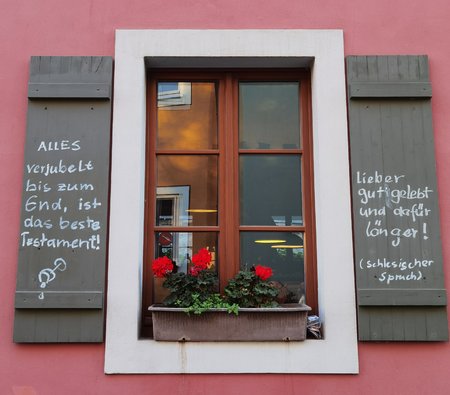 ALLES
verjubelt
bis zum
End, ist
das beste
Testament!
Lieber
gut gelebt
und dafür
länger!
(schlesischer
Spruch)